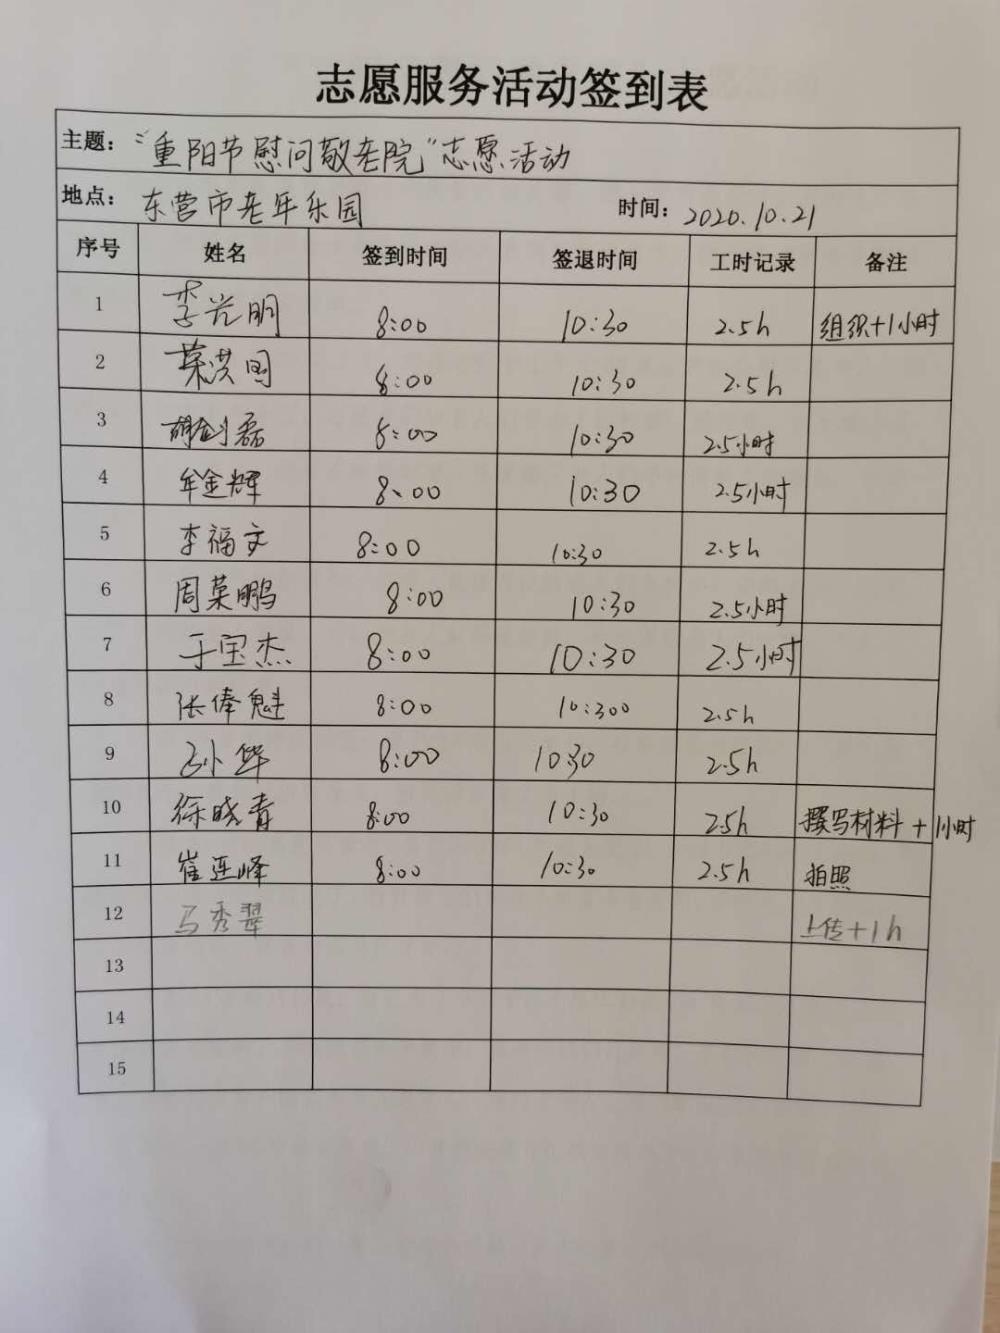 志愿服务活动签到表
主题："重阳节慰问敬老院"志愿活动
地点：东营市老年乐园 时间：2020.10.21
序号 姓名 签到时间 签退时间 工时记录 备注
1 李光明 8:00 10:30 2.5h 组织+1小时
2 荣洪国 8:00 10:30 2.5h
3 胡剑磊 8:00 10:30 2.5小时
4 牟金辉 8:00 10:30 2.5小时
5 李福文 8:00 10:30 2.5h
6 周荣鹏 8:00 10:30 2.5小时
7 于宝杰 8:00 10:30 2.5小时
8 张俸魁 8:00 10:300 2.5h
9 8:00 10:30 2.5h
10 徐晓青 8:00 10:30 2.5h 撰写材料+1小时
11 崔连峰 8:00 10:30 2.5h 拍照
12 马秀翠 上传+1h
13
14
15